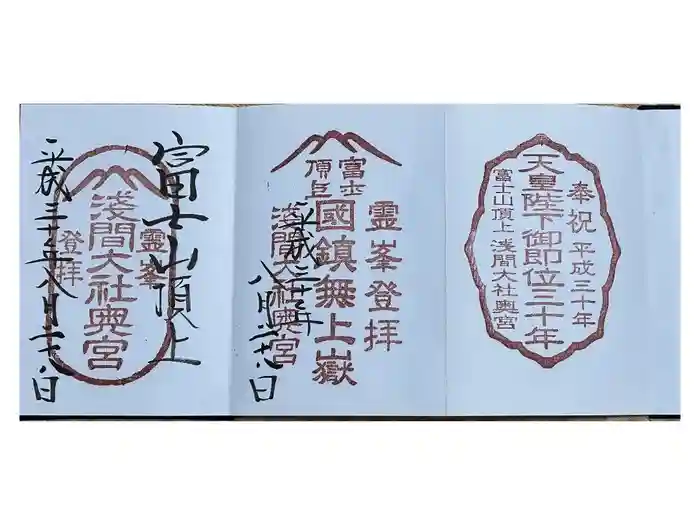 奉祝 平成三十年
天皇陛下御即位三十年
富士山頂上 淺間大社奥宮
富士
頂上
霊峯登拝
國鎮無上嶽
淺間大社奥宮
平成三十年
八月二十八日
富士山頂上
霊峯
淺間大社奥宮
登拝
平成三十年八月二十八日